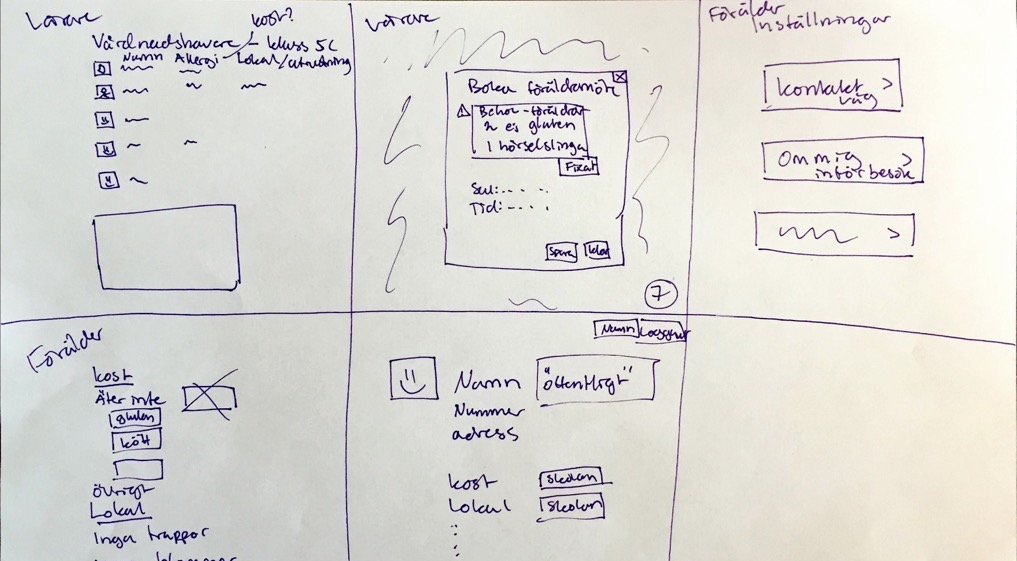 Lärare
kost?
Vårdnadshavare - klass 5C
Namn Allergi Lokal/utrustning
Lärare
Boka föräldramöte
Behov - föräldrar
2 ej gluten
1 hörselslinga
Fixat
Sal:- . . .
Tid:- - . .
Spara Klar
7
Förälder
Inställningar
Kontakt
väg >
Om mig >
inför besök
>
Förälder
kost
Äter inte
gluten
kött
övrigt
Lokal
Inga trappor
Namn Logga ut
Namn "öffentligt"
Nummer
adress
kost skolan
Lokal skolan